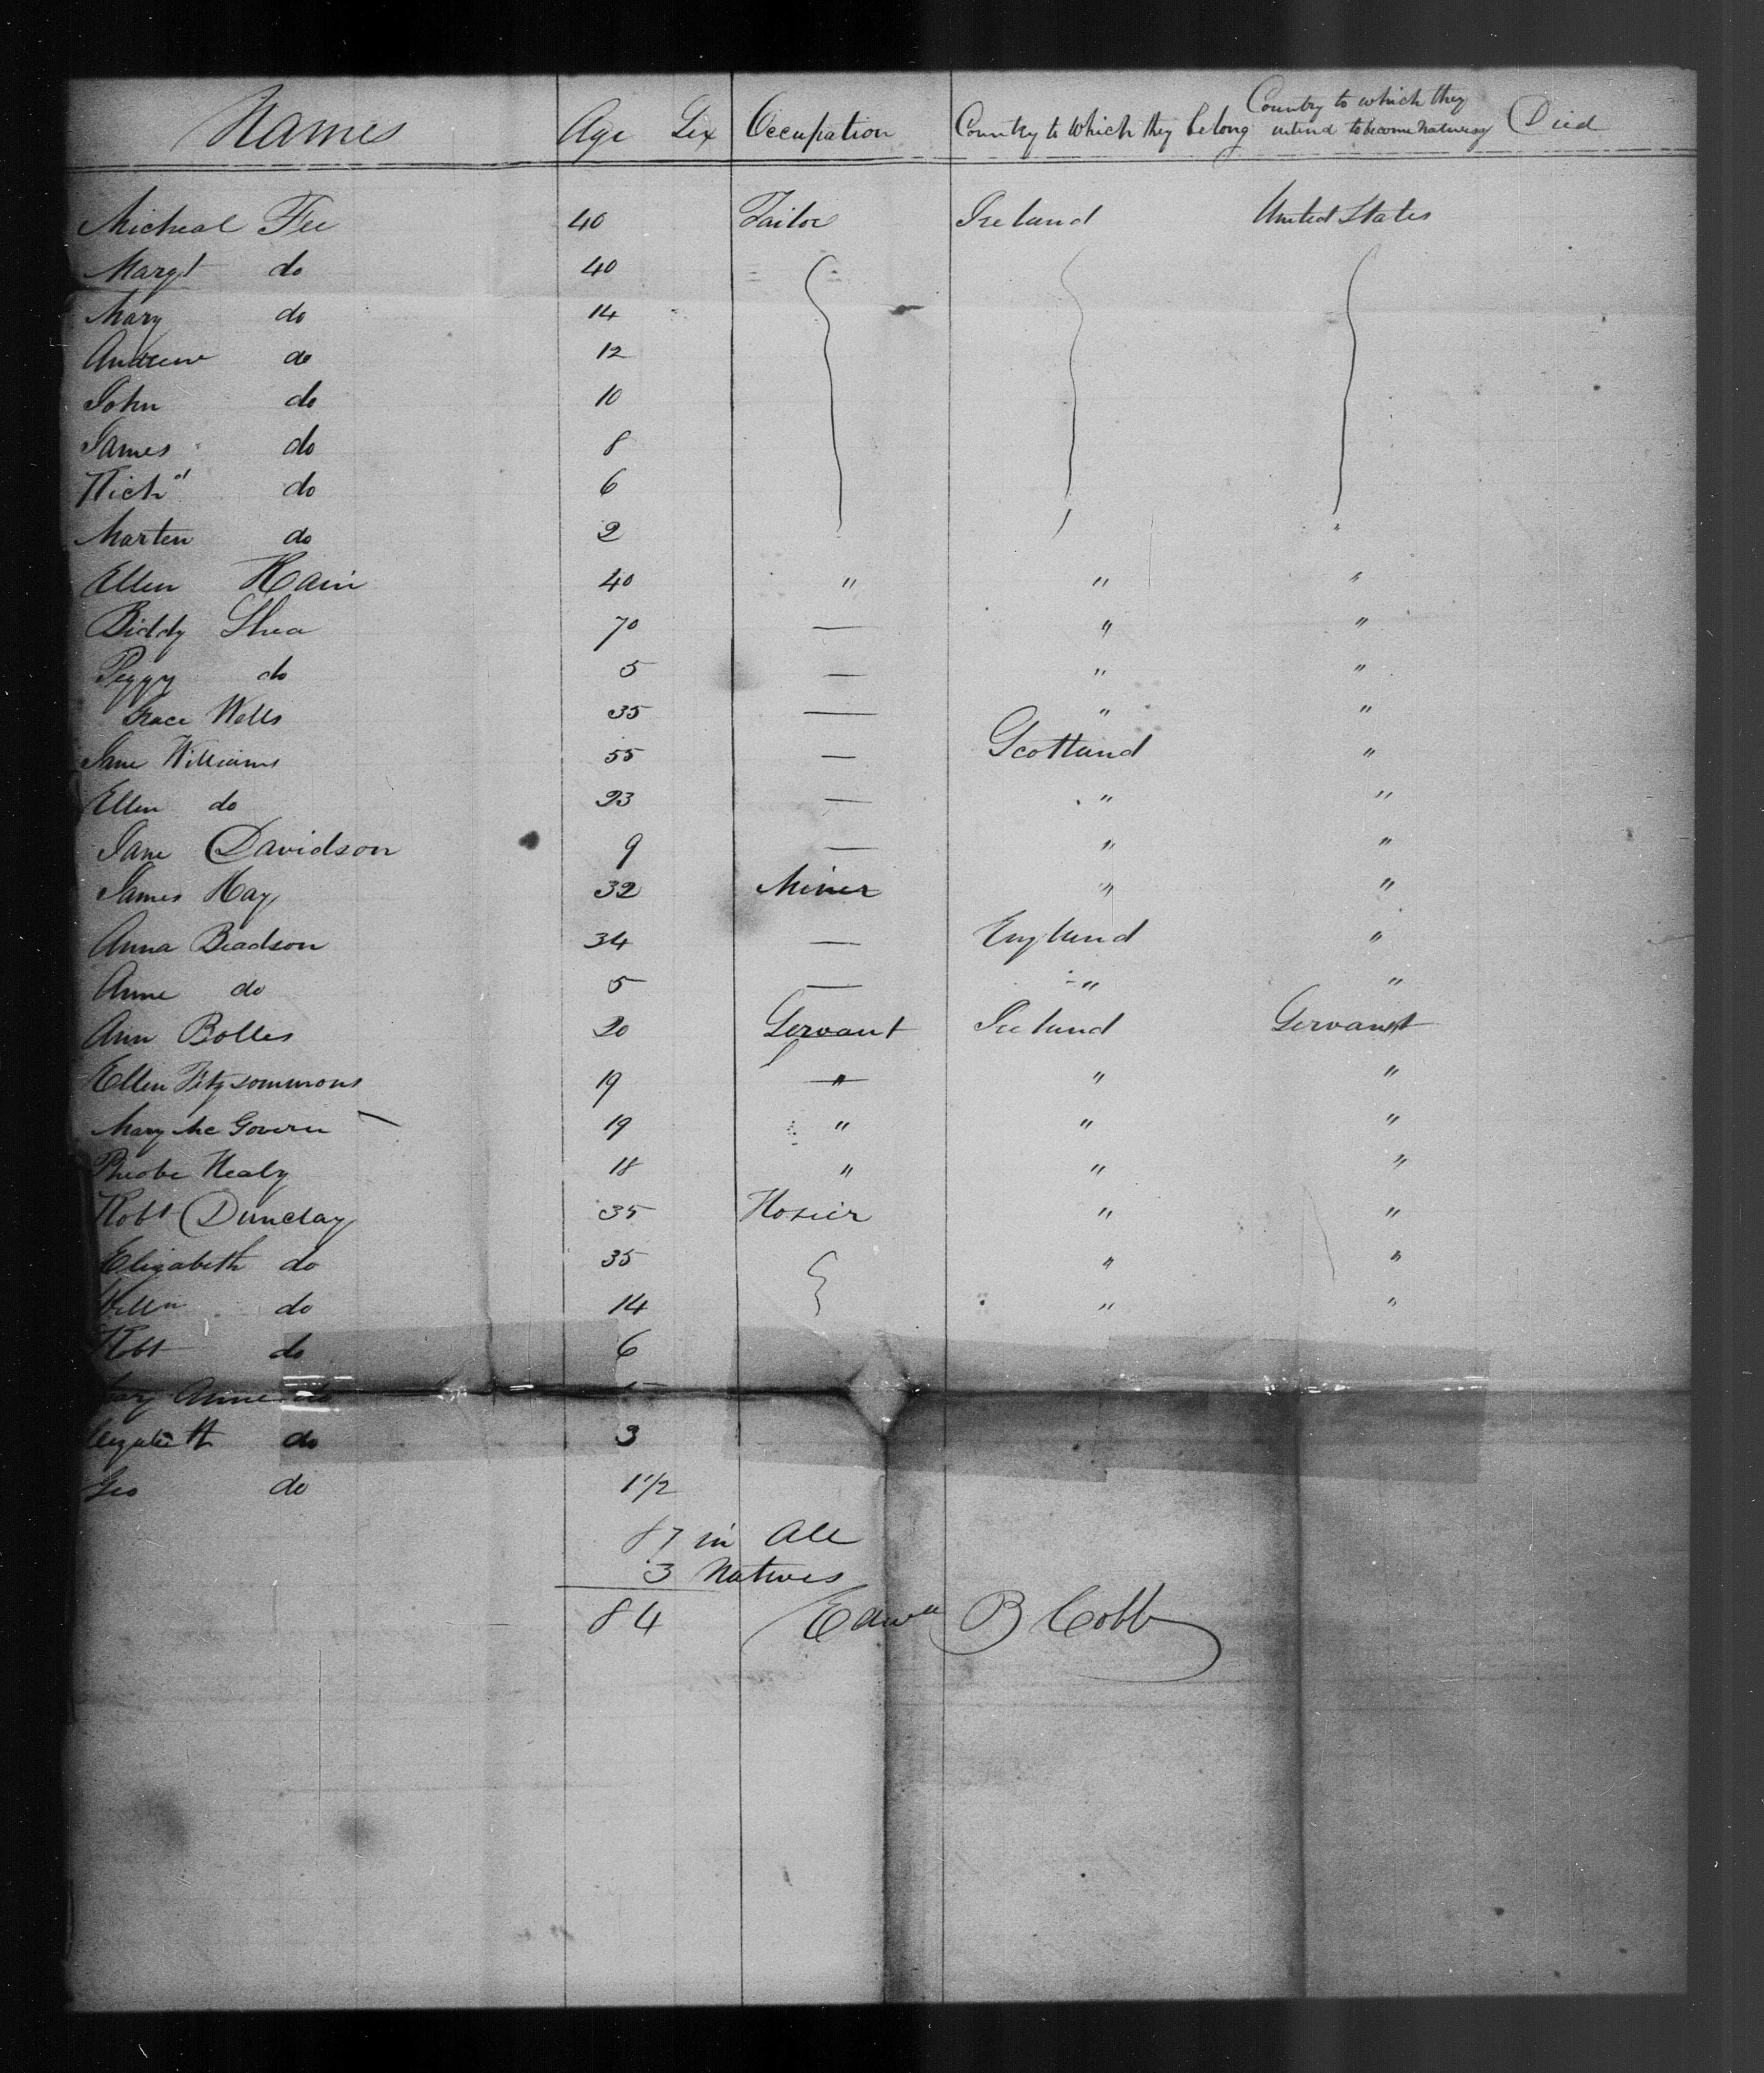 Names Age Sex Occupation Country to which they belong Country to which they intend to become natives Died
Micheal Fee 40 Tailor Ireland United States
Margt do 40
Mary do 14
Andrew do 12
John do 10
James do 8
Richd do 6
Marten do 2
Ellen Hain 40 " " "
Biddy Shea 70 — " "
Peggy do 5 — " "
Grace Wells 35 — " "
Jane Williams 55 — Scotland "
Ellen do 23 — " "
Jane Davidson 9 — " "
James Hay 32 Miner " "
Anna Beadson 34 — England "
Anne do 5 — " "
Ann Bolles 20 Servant Ireland Servant
Ellen Fitzsommons 19 " " "
Mary Mc Govern 19 " " "
Pheobe Healy 18 " " "
Robt Dunclay 35 Hosier " "
Elizabeth do 35 " "
do 14 " "
Robt do 6
Anne do
do 3
Geo do 1 1/2
87 in All
3 Natives
84 Edwd B Cobb